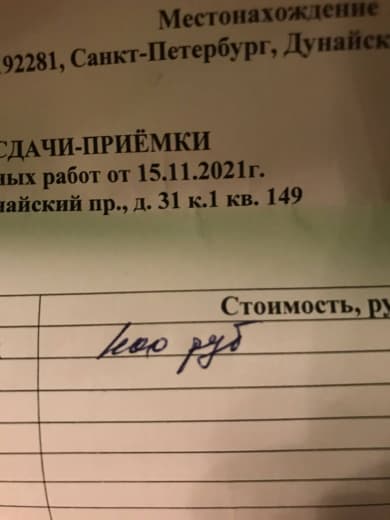 Местонахождение
192281, Санкт-Петербург, Дунайск
СДАЧИ-ПРИЁМКИ
ных работ от 15.11.2021г.
найский пр., д. 31 к.1 кв. 149
Стоимость, ру
руб